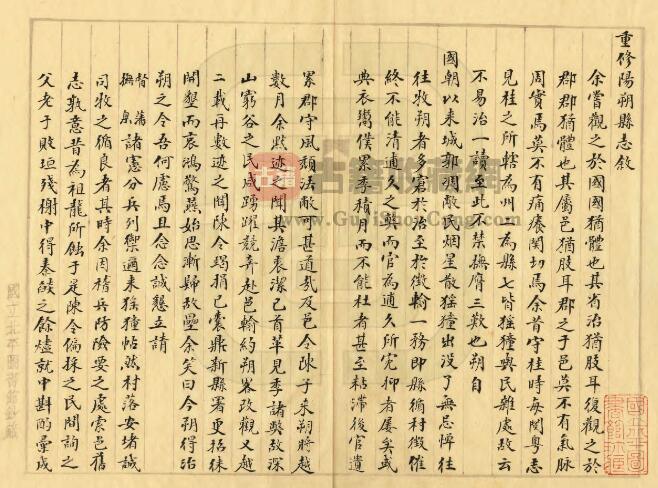 重修陽朔縣志敘
余嘗觀之於國國猶體也其省治猶肱耳復觀之於
郡郡猶體也其屬邑猶肢耳郡之于邑莫不有氣脉
周實焉莫不有痛癢関切焉余昔守桂時每閱粤志
見桂之所轄為州一為縣七皆猺獞與民雜處故云
不易治一讀至此不禁撫膺三歎也朔自
國朝以來城郭凋敝民烟星散猺獞出沒了無忌憚往
往牧朔者多寄於治至於徵輸一務即縣循村徵催
終不能清逋久之與而官為逋久所寃抑者屢矣或
典衣鬻僕累季積月而不能杜者甚至粘滯後官遺
累郡守風頹法敝可甚道㢤及邑令陳子來朔時越
數月余默迹之聞其澹衷潔己首革見季諸獘故深
山窮谷之民咸踴躍競奔赴邑輸約朔峯改觀又越
二載再數迹之聞陳令蠲捐己囊鼎新縣署更招徠
開墾而哀鴻驚燕始思漸歸故壘余笑曰今朔得治
朔之令吾何慮焉且念念誠懇立請
督撫藩臬諸憲分兵列禦過來猺獞帖然村落安堵誠
司牧之循良者其時余因稽兵防險要之處索邑舊
志敦意昔為祖龍所蝕于是陳令偏採之民間詢之
父老于敗垣殘榭中得秦燄之餘燼就中斟酌彙成
國立北平圖書館鈔藏
古籍收藏网
www.GuJiShouCang.com